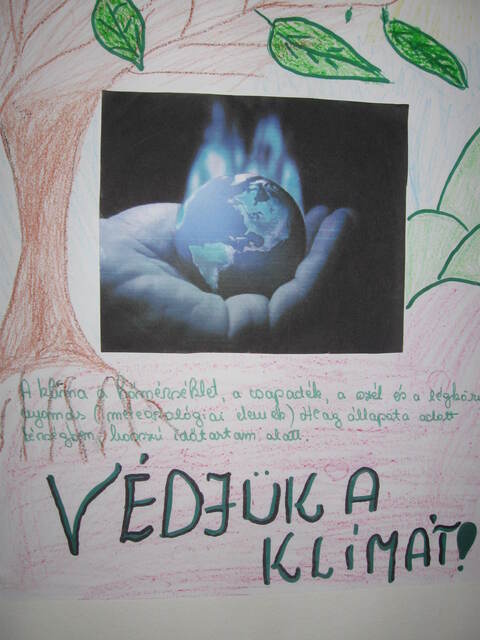 A klíma a hőmérséklet, a csapadék, a szél és a légköri
nyomás (meteorológiai elemek) átlag állapota adott
térségben, hosszú időtartam alatt.
VÉDJÜK A
KLÍMÁT!